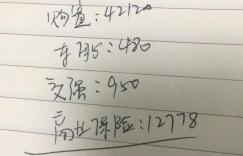 购置:42120
车船:480
交强:950
商业保险:12778